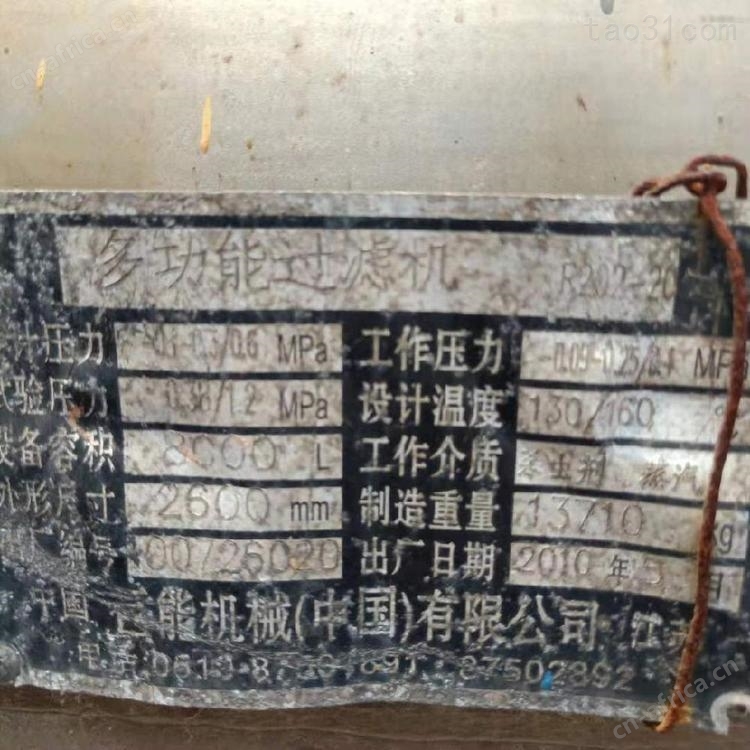 tao31.com
多功能过滤机 R202-20
计压力 /0.6 MPa 工作压力 -0.09-0.25/0.4 MPa
试验压力 /1.2 MPa 设计温度 130/160 ℃
设备容积 8000 L 工作介质 蒸汽
外形尺寸 2600 mm 制造重量 13710 kg
编号 00725020 出厂日期 2010 年 月
中国 能机械(中国)有限公司 江苏
87502892
cnc.africa.cn